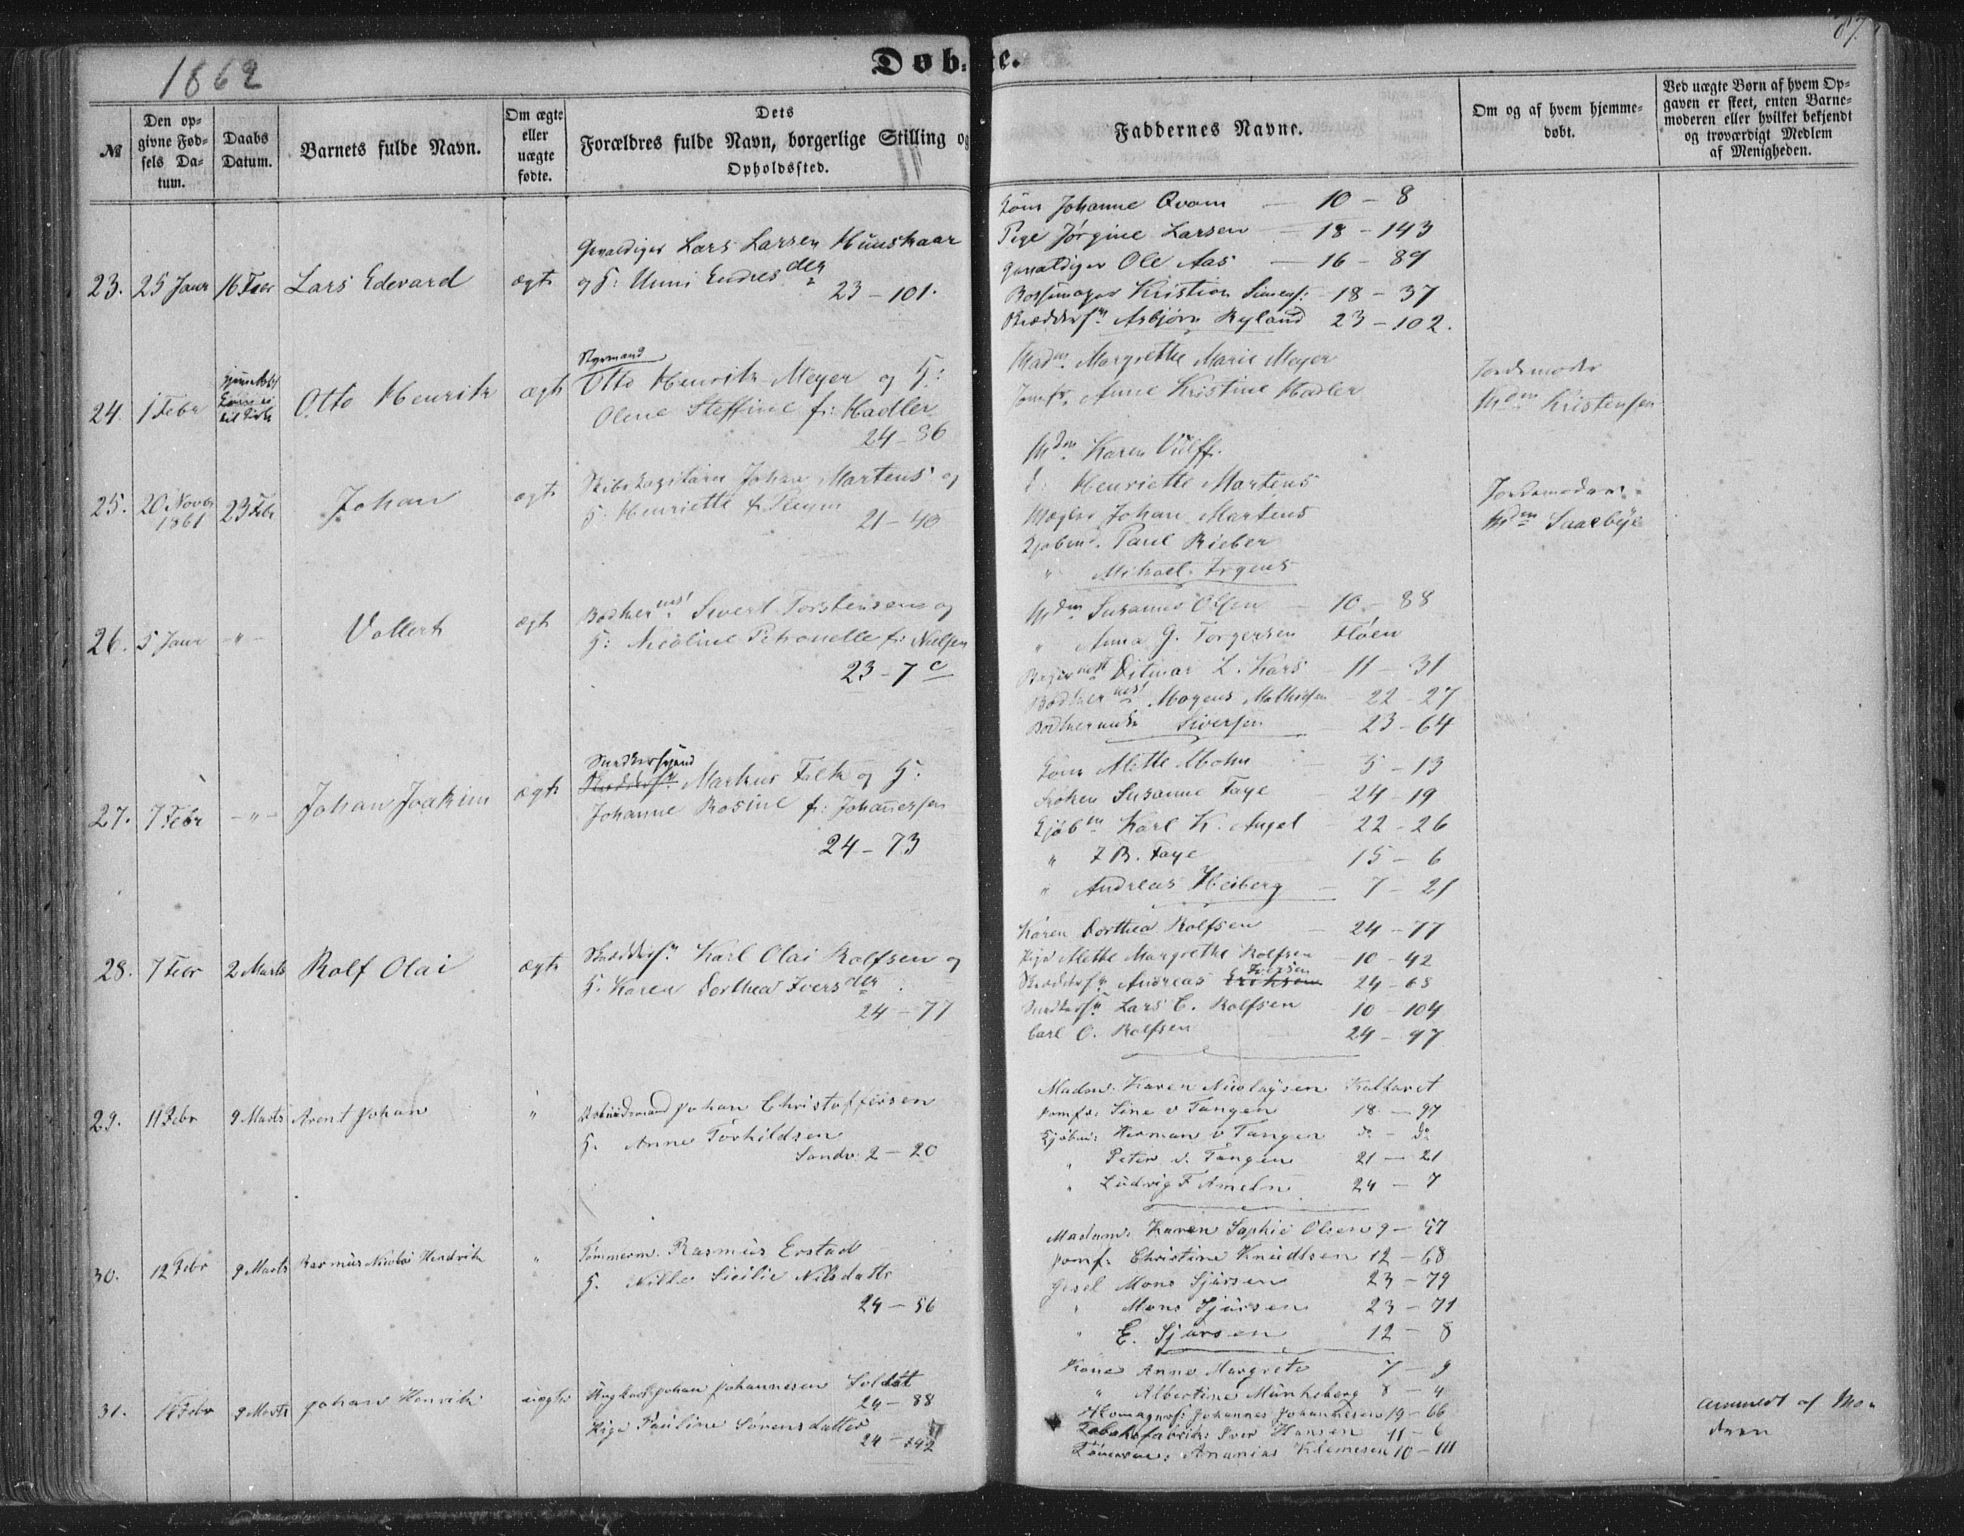 1862
87.
Døbte.
№
Den opgivne Fødsels Datum.
Daabs Datum.
Barnets fulde Navn.
Om ægte eller uægte fødte.
Dets Forældres fulde Navn, borgerlige Stilling og Opholdssted.
Faddernes Navne.
Om og af hvem hjemmedøbt.
Ved uægte Børn af hvem Opgaven er skeet, enten Barnemoderen eller hvilket bekjendt og troværdigt Medlem af Menigheden.
23. 25 Janr 16 Febr Lars Edevard ægte
Gevaldiger Lars Larsen Hunskaar
og H: Unni Endresdtr 23 - 101.
Kone Johanne Qvam - 10 - 8
Pige Jørgine Larsen - 18 - 143
Gevaldiger Ole Aas - 16 - 89
Kristian Simens: - 18 - 37
Asbjørn Ryland 23 - 102.
24. 1 Febr Otto Henrik ægte
Styrmand
Otto Henrik Meyer og H:
Olene Steffine f: Hadler
24 - 86
Madm. Margrethe Marie Meyer
Jomfr. Anne Kristine Hadler
Jordemoder
Mdm Kristensen
25. 20 Novbr 1861 23 Febr Johan ægte
Skibskapitain Johan Martens og
H: Henriette f.
21 - 40
Mdm Karen Wulff.
d: Henriette Martens
Mægler Johan Martens
Kjøbmd. Paul Rieber
" Michael Irgens
Jordemoder
Mdm
26. 5 Janr - " - Vollert ægte
Bødkermst Sivert Torstensen og
H: Nicoline Petronelle f: Nielsen
23 - 7 c
Mdm Susanne Olsen - 10 - 88
" Anna G. Torgersen Fløen
Bagermst Ditmar L. Kars - 11 - 31
Bødkermst Mogens Mathiesen - 22 - 27
Siversen - 23 - 64
27. 7 Febr - " - Johan Joakim ægte
Snedkersvend
Markus Falk og H.
Johanne Rosine f: Johannesen
24 - 73
Kone Alette Mohn 5 - 13
Frøken Susanne Faye - 24 - 19
Kjøbm Karl K. Angel 22 - 26
" F B. Faye 15 - 6
" Andreas Heiberg - 7 - 21
28. 7 Febr 2 Marts Rolf Olai ægte
Skrædersv. Karl Olai Rolfsen og
H. Karen Dorthea Iversdtr.
24 - 77
Karen Dorthea Rolfsen - 24 - 77
Pige Mette Margrethe Rolfsen - 10 - 42
Skræddersv Andreas Eriksen Iversen 24 - 68
Snedkersv Lars C. Rolfsen 10 - 104
Carl O. Rolfsen 24 - 97
29. 11 Febr 9 Marts Arent Johan "
Johan Christoffersen
H. Anne Torkildsen
Sandv: 2 - 20
Madm. Karen Nicolaysen Kalfaret
Jomfr: Sine v Tangen 18 - 97
Kjøbm: Herman v Tangen do - do
" Peter v. Tangen 21 - 21
" Ludvig F Ameln 24 - 7
30. 12 Febr 9 Marts Rasmus Nicolai Hendrik "
Tømmerm. Rasmus Erstad
H. Nille Sicilie Nilsdatter
24 - 56
Madam. Karen Sophie Olsen 9 - 57
Jomf: Christine Knudtsen 12 - 68
Gesel Mons Sjursen 23 - 79
" Mons Sjursen 23 - 71
" E. Sjursen 12 - 8
31. 9 Marts Johan Henrik uægte
Ungkarl Johan Johannesen Soldat
24 - 88
Pige Pauline Sørensdatter
24 - 142
Kone Anne Margrete 7 - 9
" Albertine Münkeberg 8 - 4
Johannes Johannesen 19 - 66
Tobaksfabrik: Iver Hansen 11 - 6
Tømmerm: Ananias Klemesen 10 - 111
anmeldt af Moderen